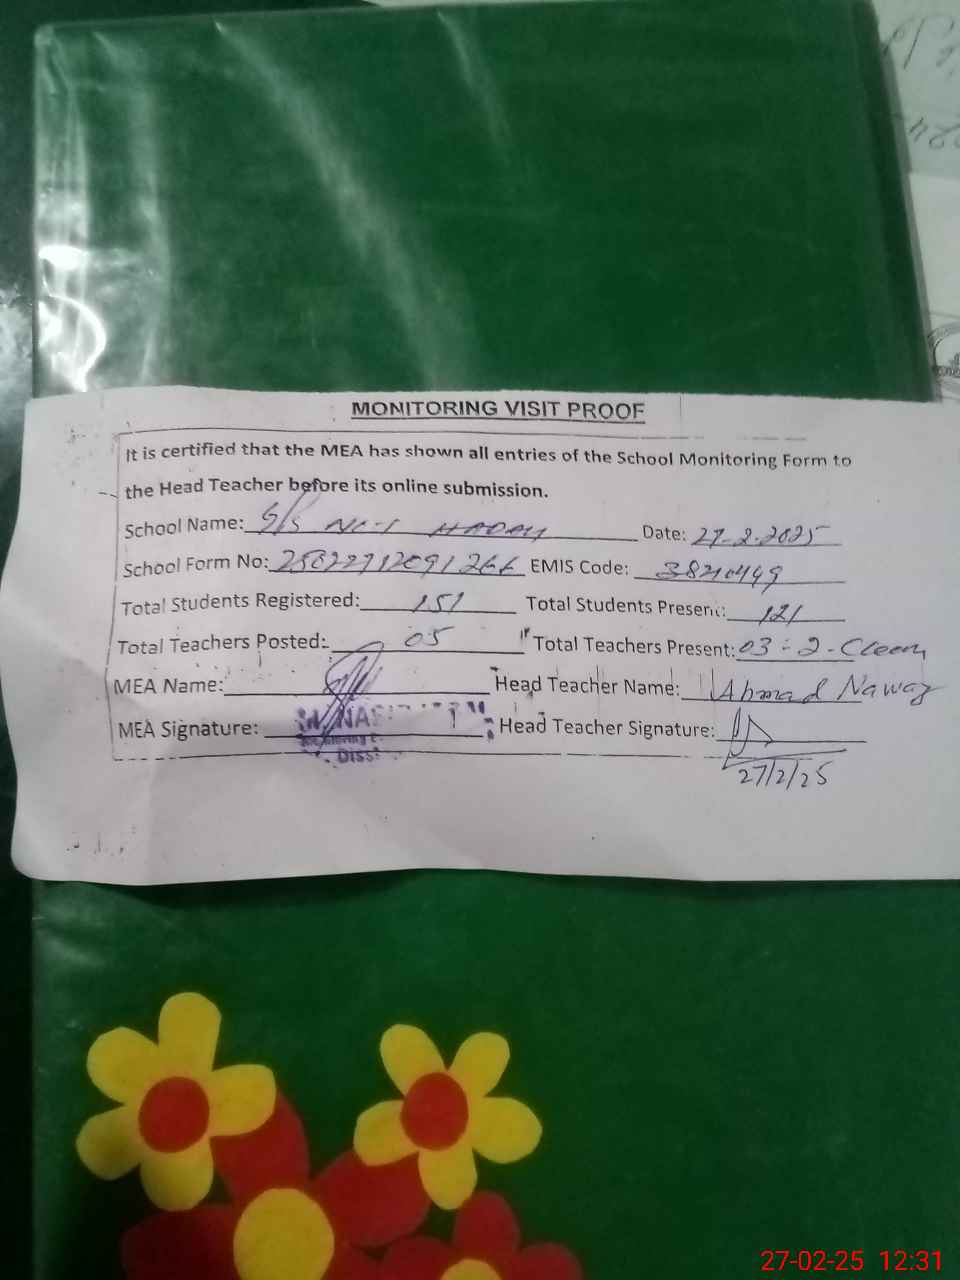 MONITORING VISIT PROOF
It is certified that the MEA has shown all entries of the School Monitoring Form to
the Head Teacher before its online submission.
School Name: NO-1 Date: 27-2-2025
School Form No: EMIS Code:
Total Students Registered: 151 Total Students Present: 121
Total Teachers Posted: 05 Total Teachers Present: 03 - 2-
MEA Name: Head Teacher Name: Ahmad Nawaz
MEA Signature: Head Teacher Signature:
27/2/25
27-02-25 12:31